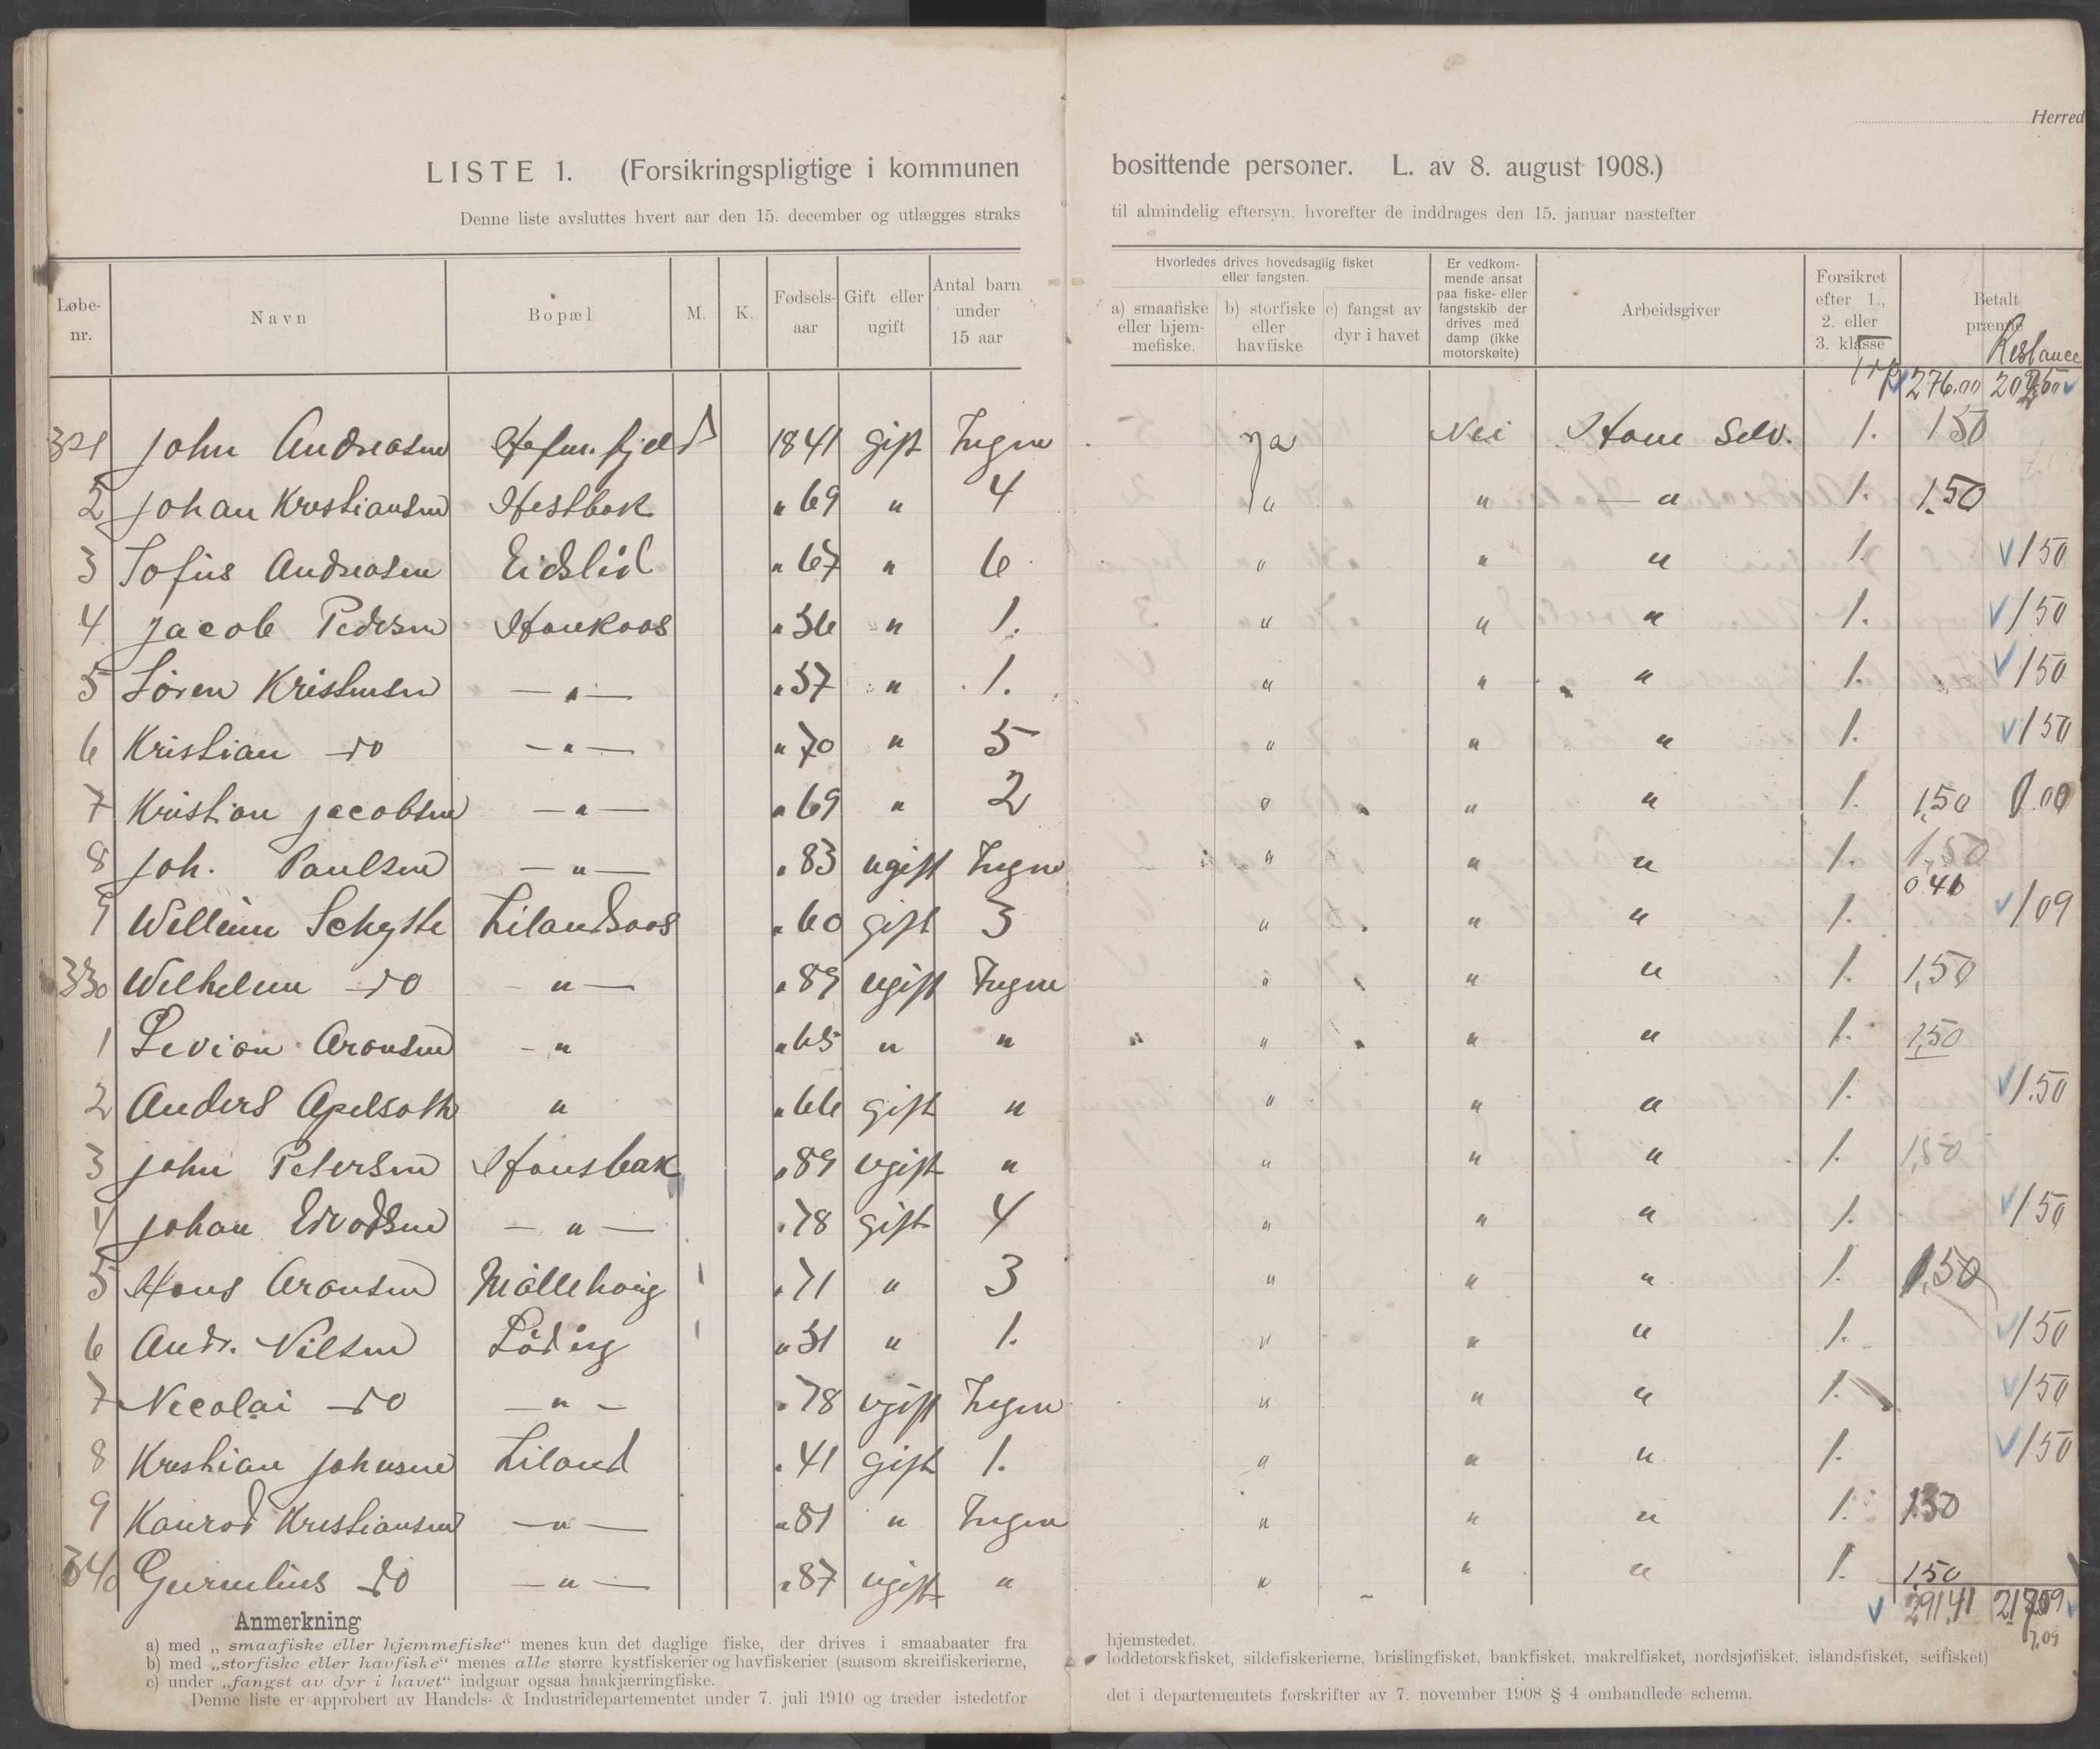 Herred
LISTE 1. (Forsikringspligtige i kommunen bosittende personer. L. av 8. august 1908.)
Denne liste avsluttes hvert aar den 15. december og utlægges straks til almindelig eftersyn, hvorefter de inddrages den 15. januar næstefter
Løbe-nr. Navn Bopæl M. K. Fødsels-aar Gift eller ugift Antal barn under 15 aar Hvorledes drives hovedsaglig fisket eller fangsten. a) smaafiske eller hjem-mefiske. b) storfiske eller havfiske c) fangst av dyr i havet Er vedkom-mende ansat paa fiske- eller fangstskib der drives med damp (ikke motorskøite) Arbeidsgiver Forsikret efter 1., 2. eller 3. klasse Betalt præmie Restance
276.00
321 John Andreasen 1841 gift Ingen ja Nei Ham Selv. 1. 150
2 Johan Kristiansen Hestbak " 69 " 4 " " — " 1. 1.50
3 Sofus Andreasen Eidslid " 67 " 6 " " " 1. 150
4 Jacob Pedersen " 56 " 1. " " " 1. 150
5 Sören Kristensen — " — " 57 " 1. " " " 1. 150
6 Kristian do — " — " 70 " 5 " " " 1. 150
7 Kristian Jacobsen — " — " 69 " 2 " " " 1. 1,50 0.00
8 Joh. Paulsen — " — " 83 ugift Ingen " " " 1. 1,50
9 Wellem Schytte Lilandsaas " 60 gift 3 " " " 1. 0.41 1 09
330 Wilhelm do " — " 89 ugift Ingen " " " 1. 1,50
1 Levion Aronsen - " " 65 " " " " " 1. 1,50
2 Anders Apelsoth " " 66 gift " " " " 1. 1.50
3 John Petersen Hansbak " 89 ugift " " " " 1. 1,50
4 Johan Edvardsen — " — " 78 gift 4 " " " 1. 150
5 Hans Aronsen " 71 " 3 " " " 1. 1,50
6 Andr. Nilsen Löding " 51 " 1. " " " 1. 150
7 Necolai do — " — " 78 ugift Ingen " " " 1. 150
8 Kristian Johnsen Liland " 41 gift 1. " " " 1. 150
9 Konrad Kristiansen — " — " 81 " Ingen " " " 1. 1.50
340 do — " — " 87 ugift " " " " 1. 1,50
291.41
7.09
Anmerkning
a) med „smaafiske eller hjemmefiske“ menes kun det daglige fiske, der drives i smaabaater fra hjemstedet.
b) med „storfiske eller havfiske“ menes alle større kystfiskerier og havfiskerier (saasom skreifiskerierne, loddetorskfisket, sildefiskerierne, brislingfisket, bankfisket, makrelfisket, nordsjøfisket, islandsfisket, seifisket)
c) under „fangst av dyr i havet“ indgaar ogsaa haakjærringfiske.
Denne liste er approbert av Handels- & Industridepartementet under 7. juli 1910 og træder istedetfor det i departementets forskrifter av 7. november 1908 § 4 omhandlede schema.